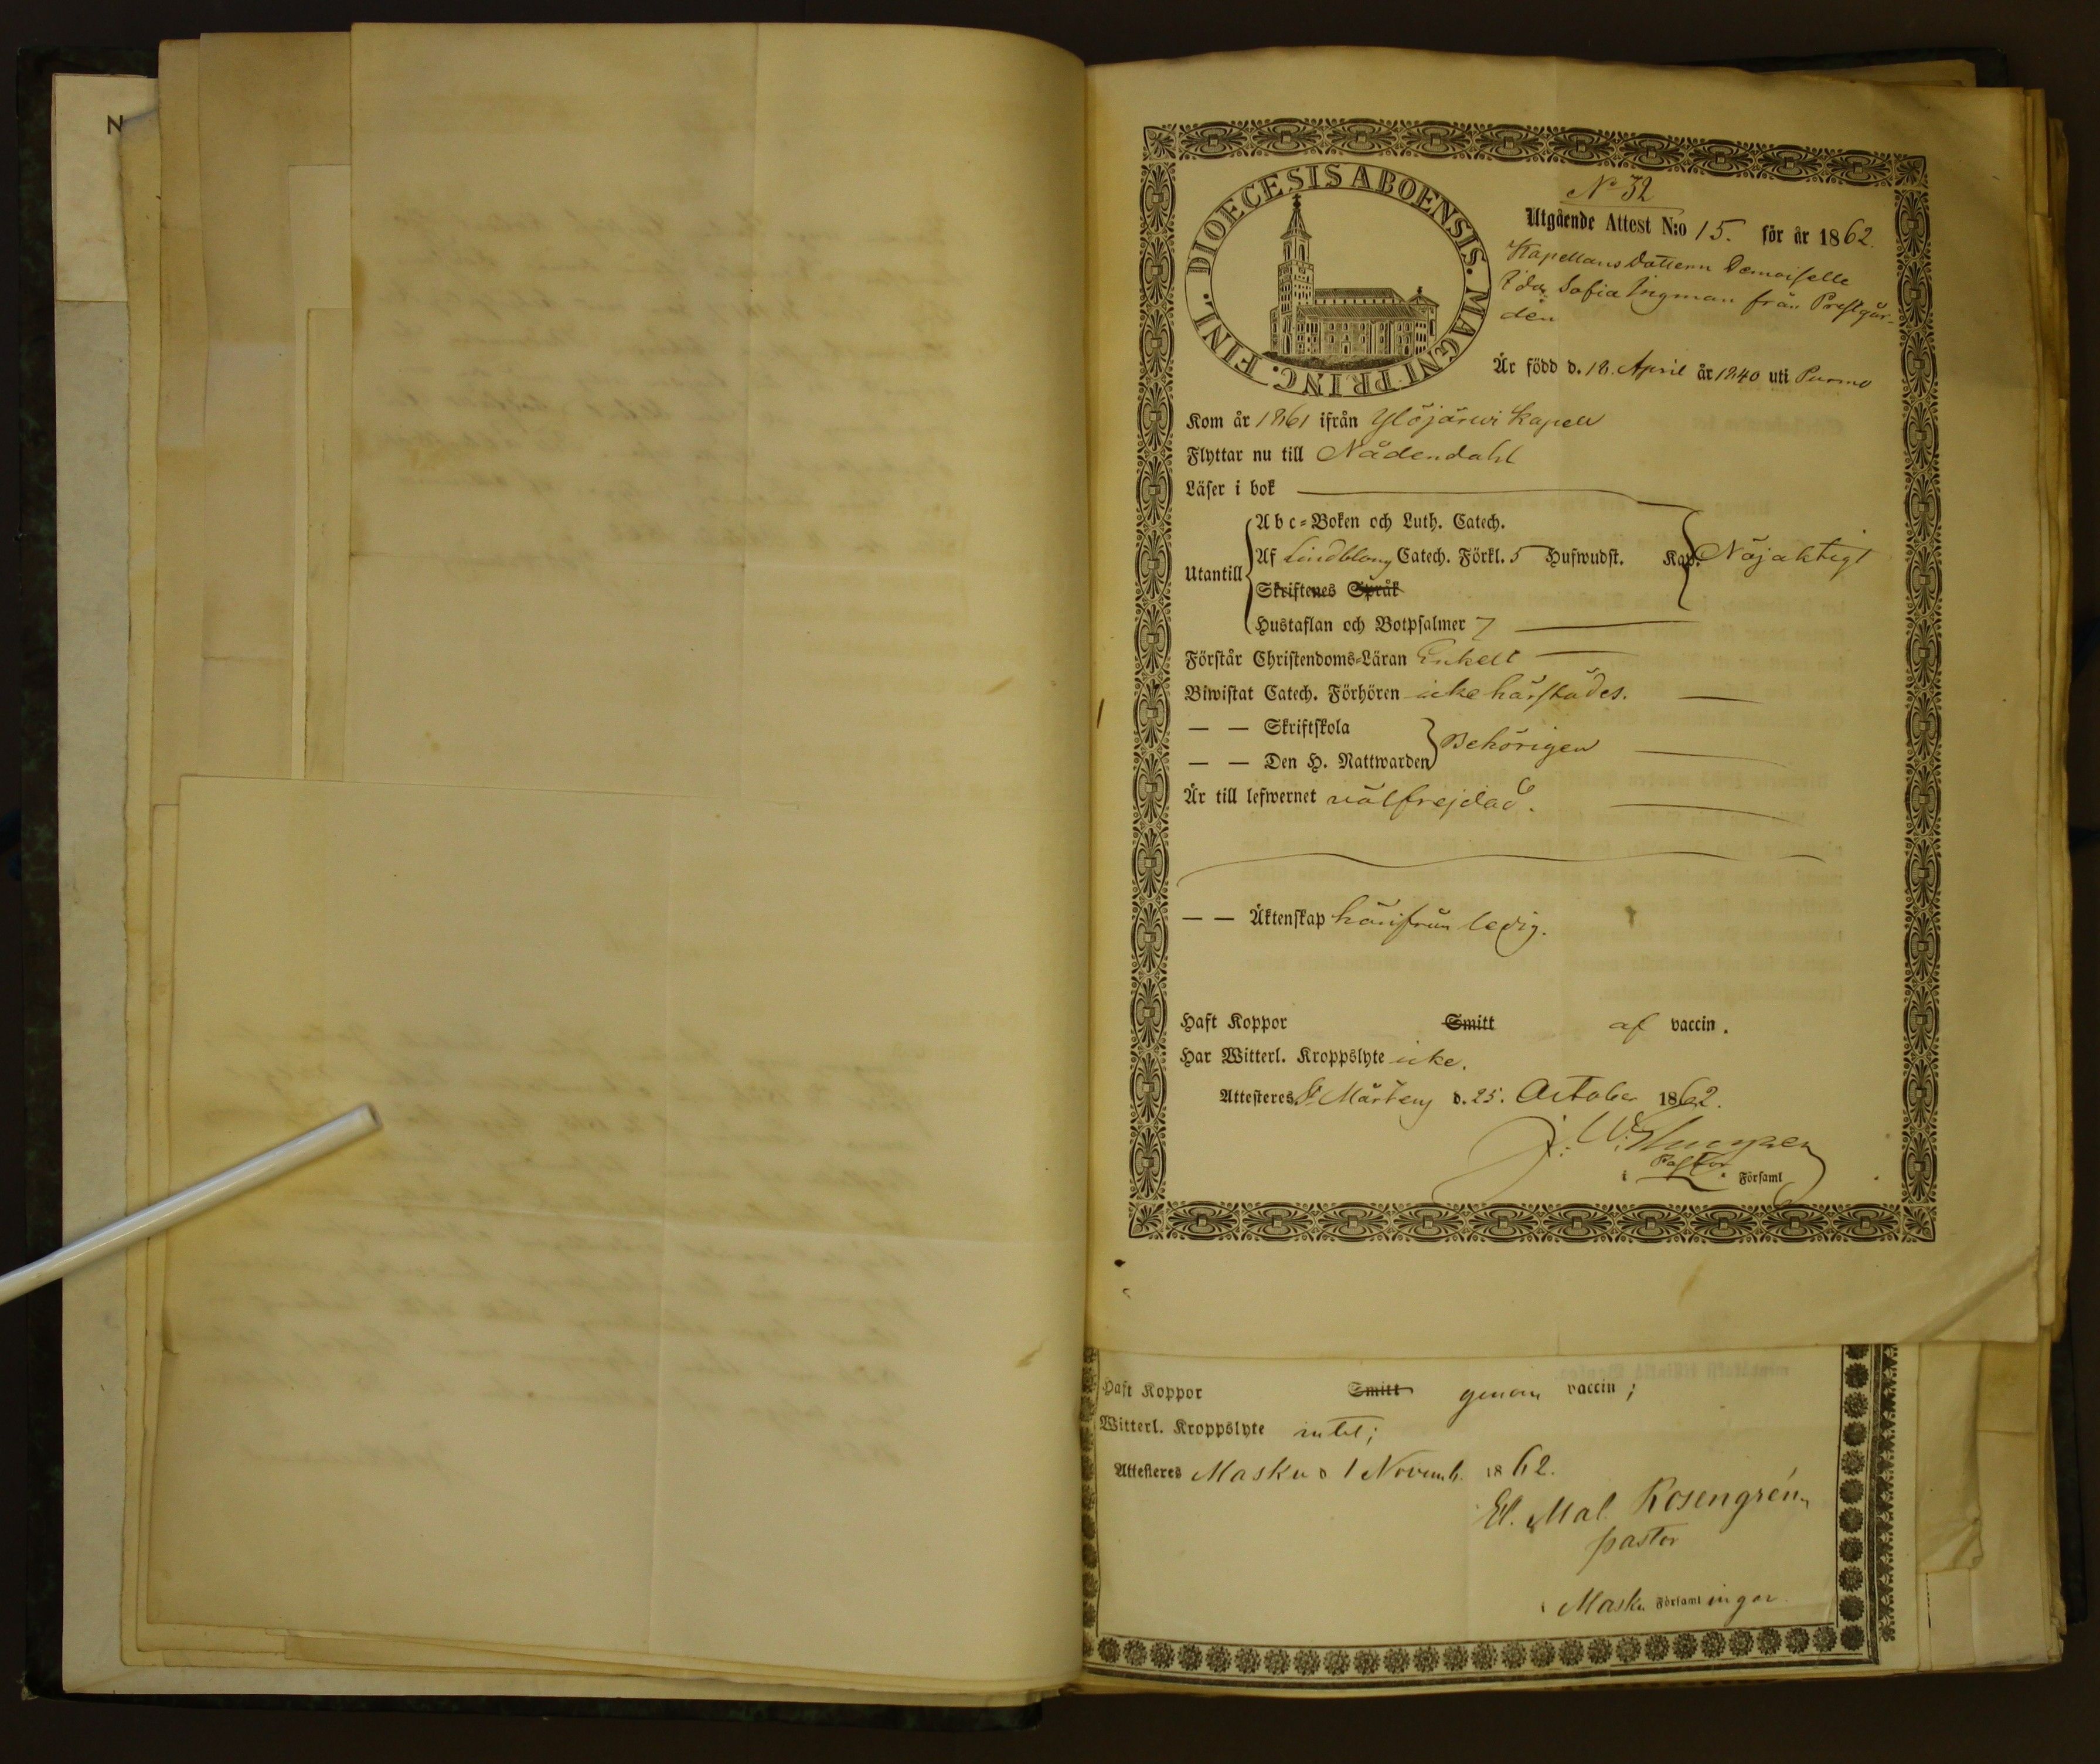 N
DIOECESIS ABOENSIS. MAGNI PRINC. FINL.
No 32
Utgående Attest N:o 15. för år 1862.
Kapellans dottern Demoiselle
Ida Sofia Ingman från Prestgår-
den
Är född d. 18. April år 1840 uti Purmo
Kom år 1861 ifrån Ylöjärwi Kapell
Flyttar nu till Nådendahl
Läser i bok
Utantill
Abc-Boken och Luth. Catech.
Af Lindbloms Catech. Förkl. 5 Hufwudst. Kap. Nöjaktigt
Skriftenes Språk
Hustaflan och Botpsalmer 7
Förstår Christendoms-Läran Enkelt
Biwistat Catech. Förhören icke härstädes.
— — Skriftskola
— — Den H. Nattwarden Behörigen
Är till lefwernet välfrejdad.
— — Äktenskap härifrån ledig.
Haft Koppor Smitt af vaccin.
Har Witterl. Kroppslyte icke.
Attesteres St Mårtens d. 25. October 1862.
J. W.
Pastor
i Församl
Haft Koppor Smitt genom vaccin;
Witterl. Kroppslyte intet;
Attesteres Masku d 1 Novemb. 1862.
El. Mal. Rosengrén
pastor
i Masku Församlingar